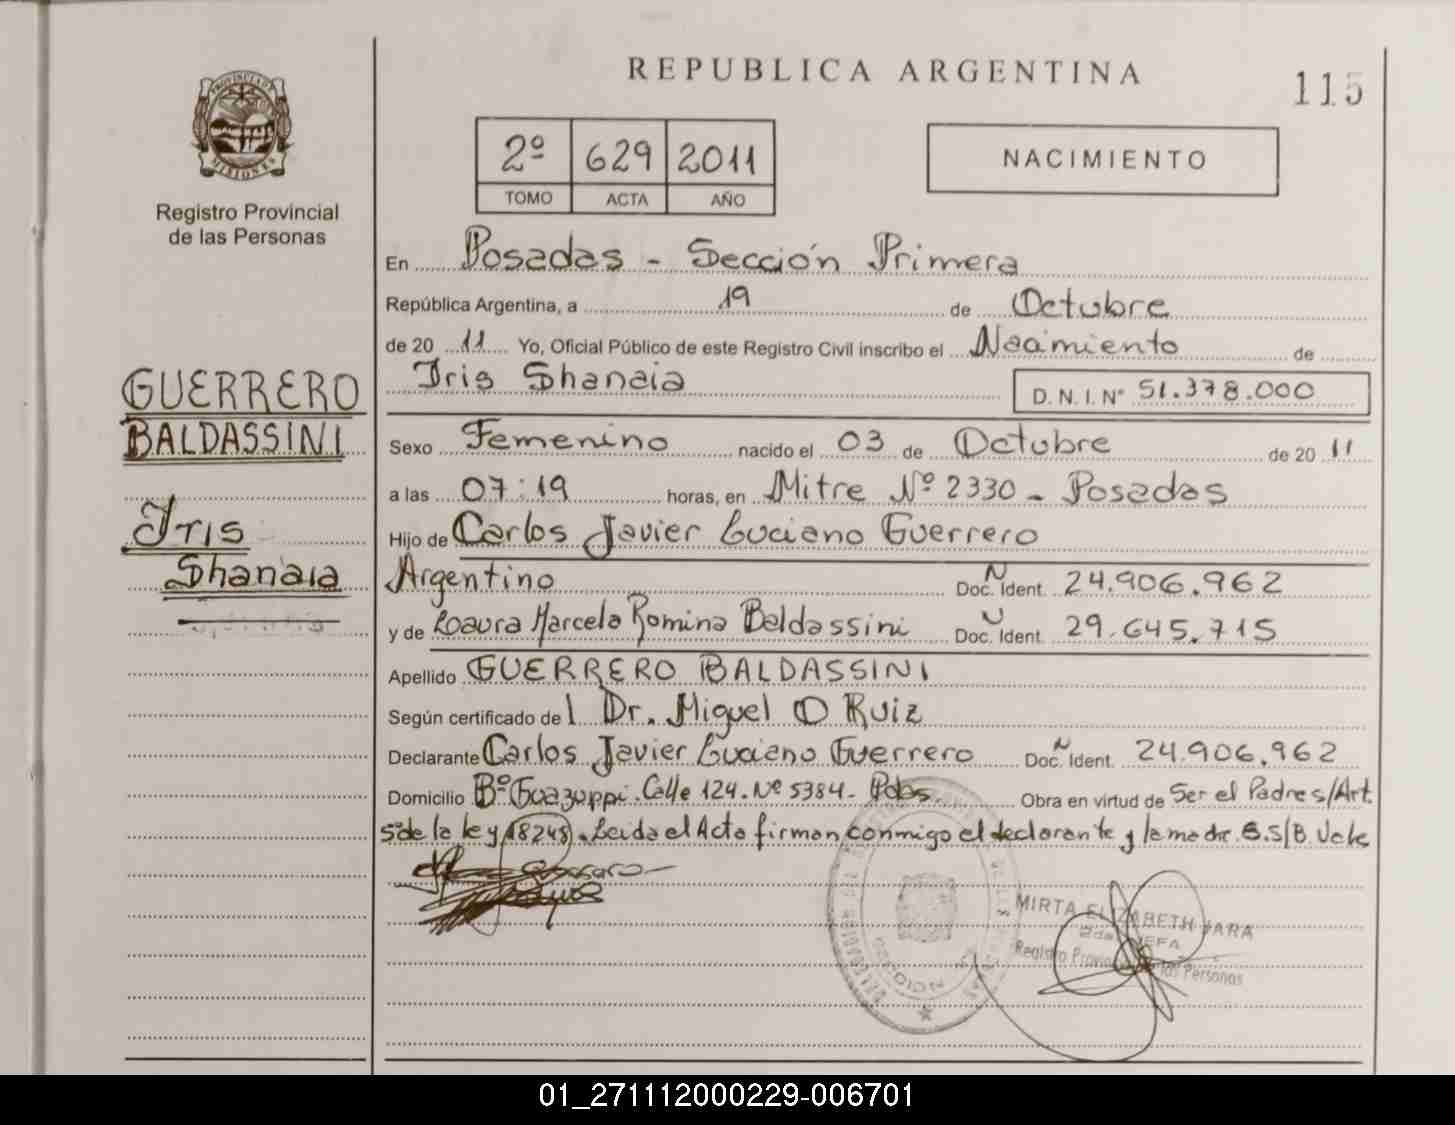 REPUBLICA ARGENTINA
115
PROVINCIA DE
MISIONES
Registro Provincial
de las Personas
2º 629 2011
TOMO ACTA AÑO
NACIMIENTO
En Posadas - Sección Primera
República Argentina, a 19 de Octubre
de 20 11 Yo, Oficial Público de este Registro Civil inscribo el Nacimiento de
Iris Shanaia D. N. I. Nº 51.378.000
GUERRERO
BALDASSINI
Iris
Shanaia
Sexo Femenino nacido el 03 de Octubre de 20 11
a las 07:19 horas, en Mitre Nº 2330 - Posadas
Hijo de Carlos Javier Luciano Guerrero
Argentino Doc. Ident. N 24.906.962
y de Laura Marcela Romina Baldassini Doc. Ident. N 29.645.715
Apellido GUERRERO BALDASSINI
Según certificado de l Dr. Miguel O Ruiz
Declarante Carlos Javier Luciano Guerrero Doc. Ident. N 24.906.962
Domicilio Bº Guazuppi. Calle 124. Nº 5384 - Pdas. Obra en virtud de Ser el Padres/Art.
5º de la ley 18248. Leida el Acta firman conmigo el declarante y la madre. S.S/B. Vale
MIRTA ELIZABETH JARA
2da JEFA
Registro Provincial de las Personas
01_271112000229-006701